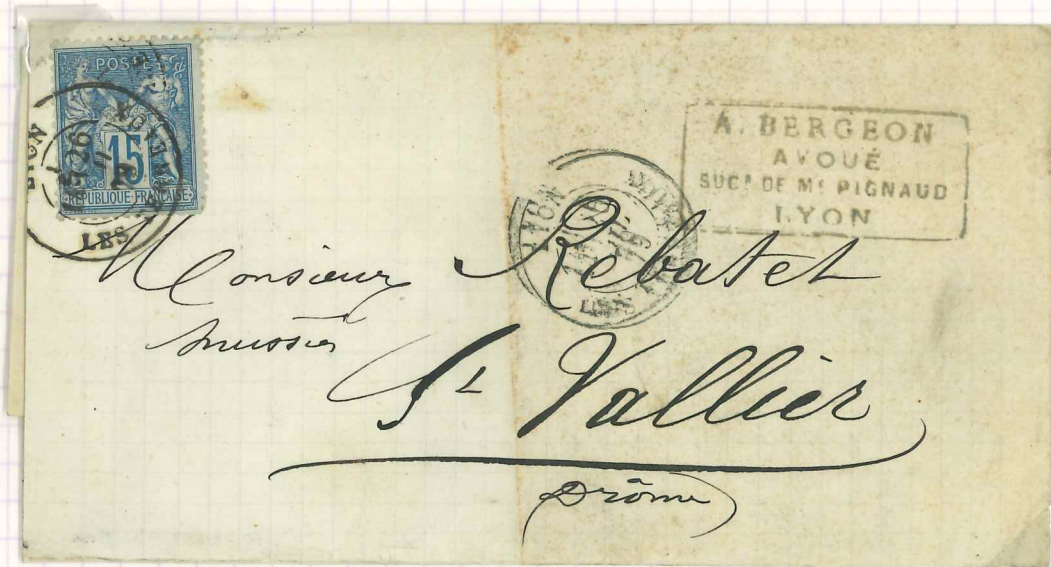 POSTE
15
RÉPUBLIQUE FRANÇAISE
LYON
LES
A. BERGEON
AVOUÉ
SUCr DE Me PIGNAUD
LYON
LYON
Monsieur Rebatet
huissier
St Vallier
Drôme